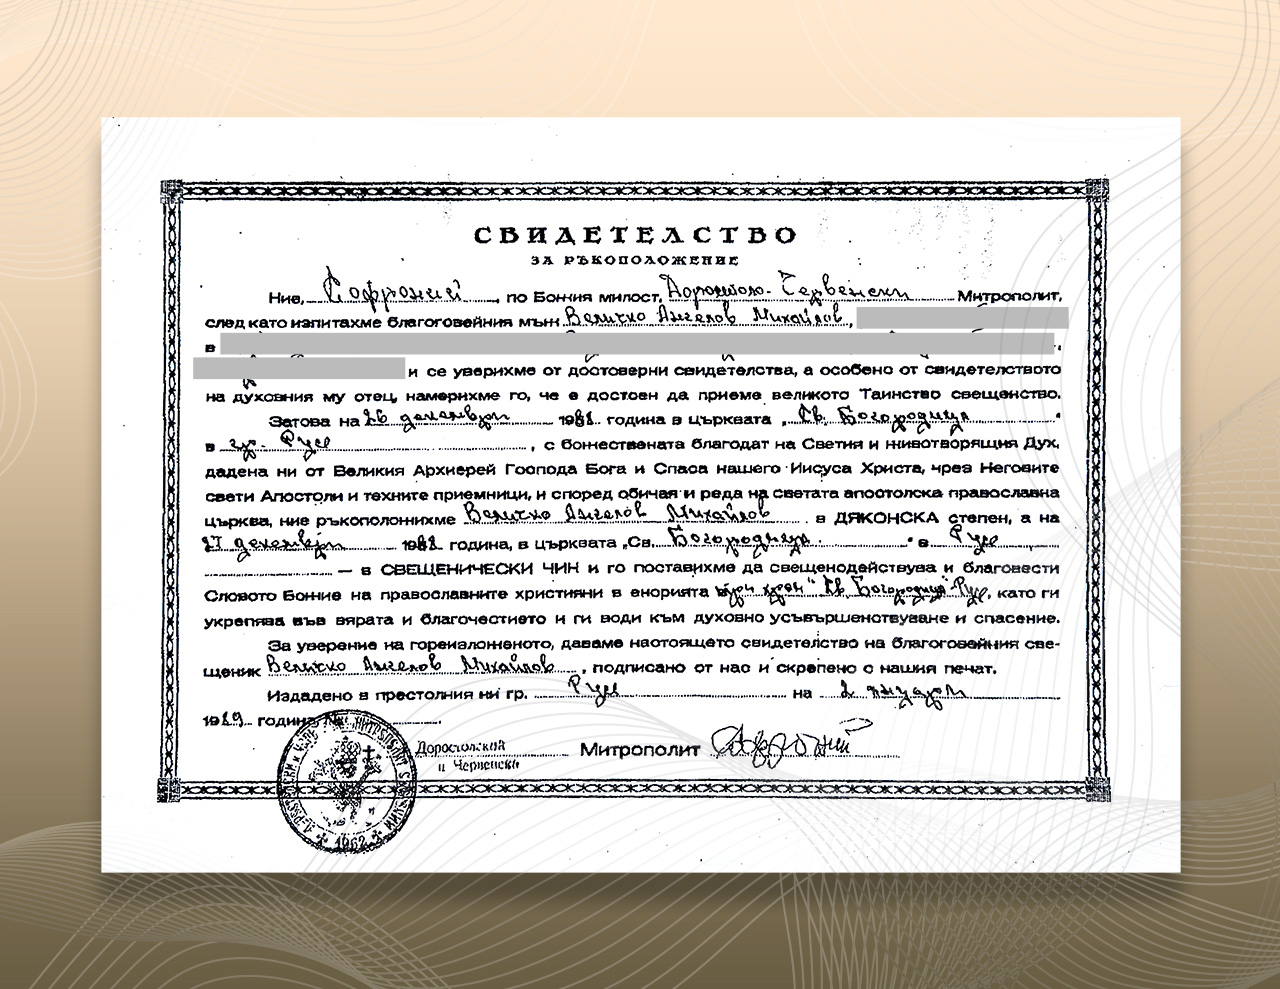 СВИДЕТЕЛСТВО
ЗА РЪКОПОЛОЖЕНИЕ
Ние, Софроний, по Божия милост, Доростоло-Червенски Митрополит,
след като изпитахме благоговейния мъж Величко Ангелов Михайлов,
в
и се уверихме от достоверни свидетелства, а особено от свидетелството
на духовния му отец, намерихме го, че е достоен да приеме великото Таинство свещенство.
Затова на 26 декември 1988 година в църквата „Св. Богородица"
в гр. Русе, с божествената благодат на Светия и животворящия Дух,
дадена ни от Великия Архиерей Господа Бога и Спаса нашего Иисуса Христа, чрез Неговите
свети Апостоли и техните приемници, и според обичая и реда на светата апостолска православна
църква, ние ръкоположихме Величко Ангелов Михайлов в ДЯКОНСКА степен, а на
27 декември 1988 година, в църквата „Св. Богородица" в Русе
— в СВЕЩЕНИЧЕСКИ ЧИН и го поставихме да свещенодействува и благовести
Словото Божие на православните християни в енорията при храм "Св. Богородица" Русе, като ги
укрепява във вярата и благочестието и ги води към духовно усъвършенствуване и спасение.
За уверение на гореизложеното, даваме настоящето свидетелство на благоговейния све-
щеник Величко Ангелов Михайлов, подписано от нас и скрепено с нашия печат.
Издадено в престолния ни гр. Русе на 2 януари
1989 година
Доростолский
и Червенски
Митрополит Софроний
1962